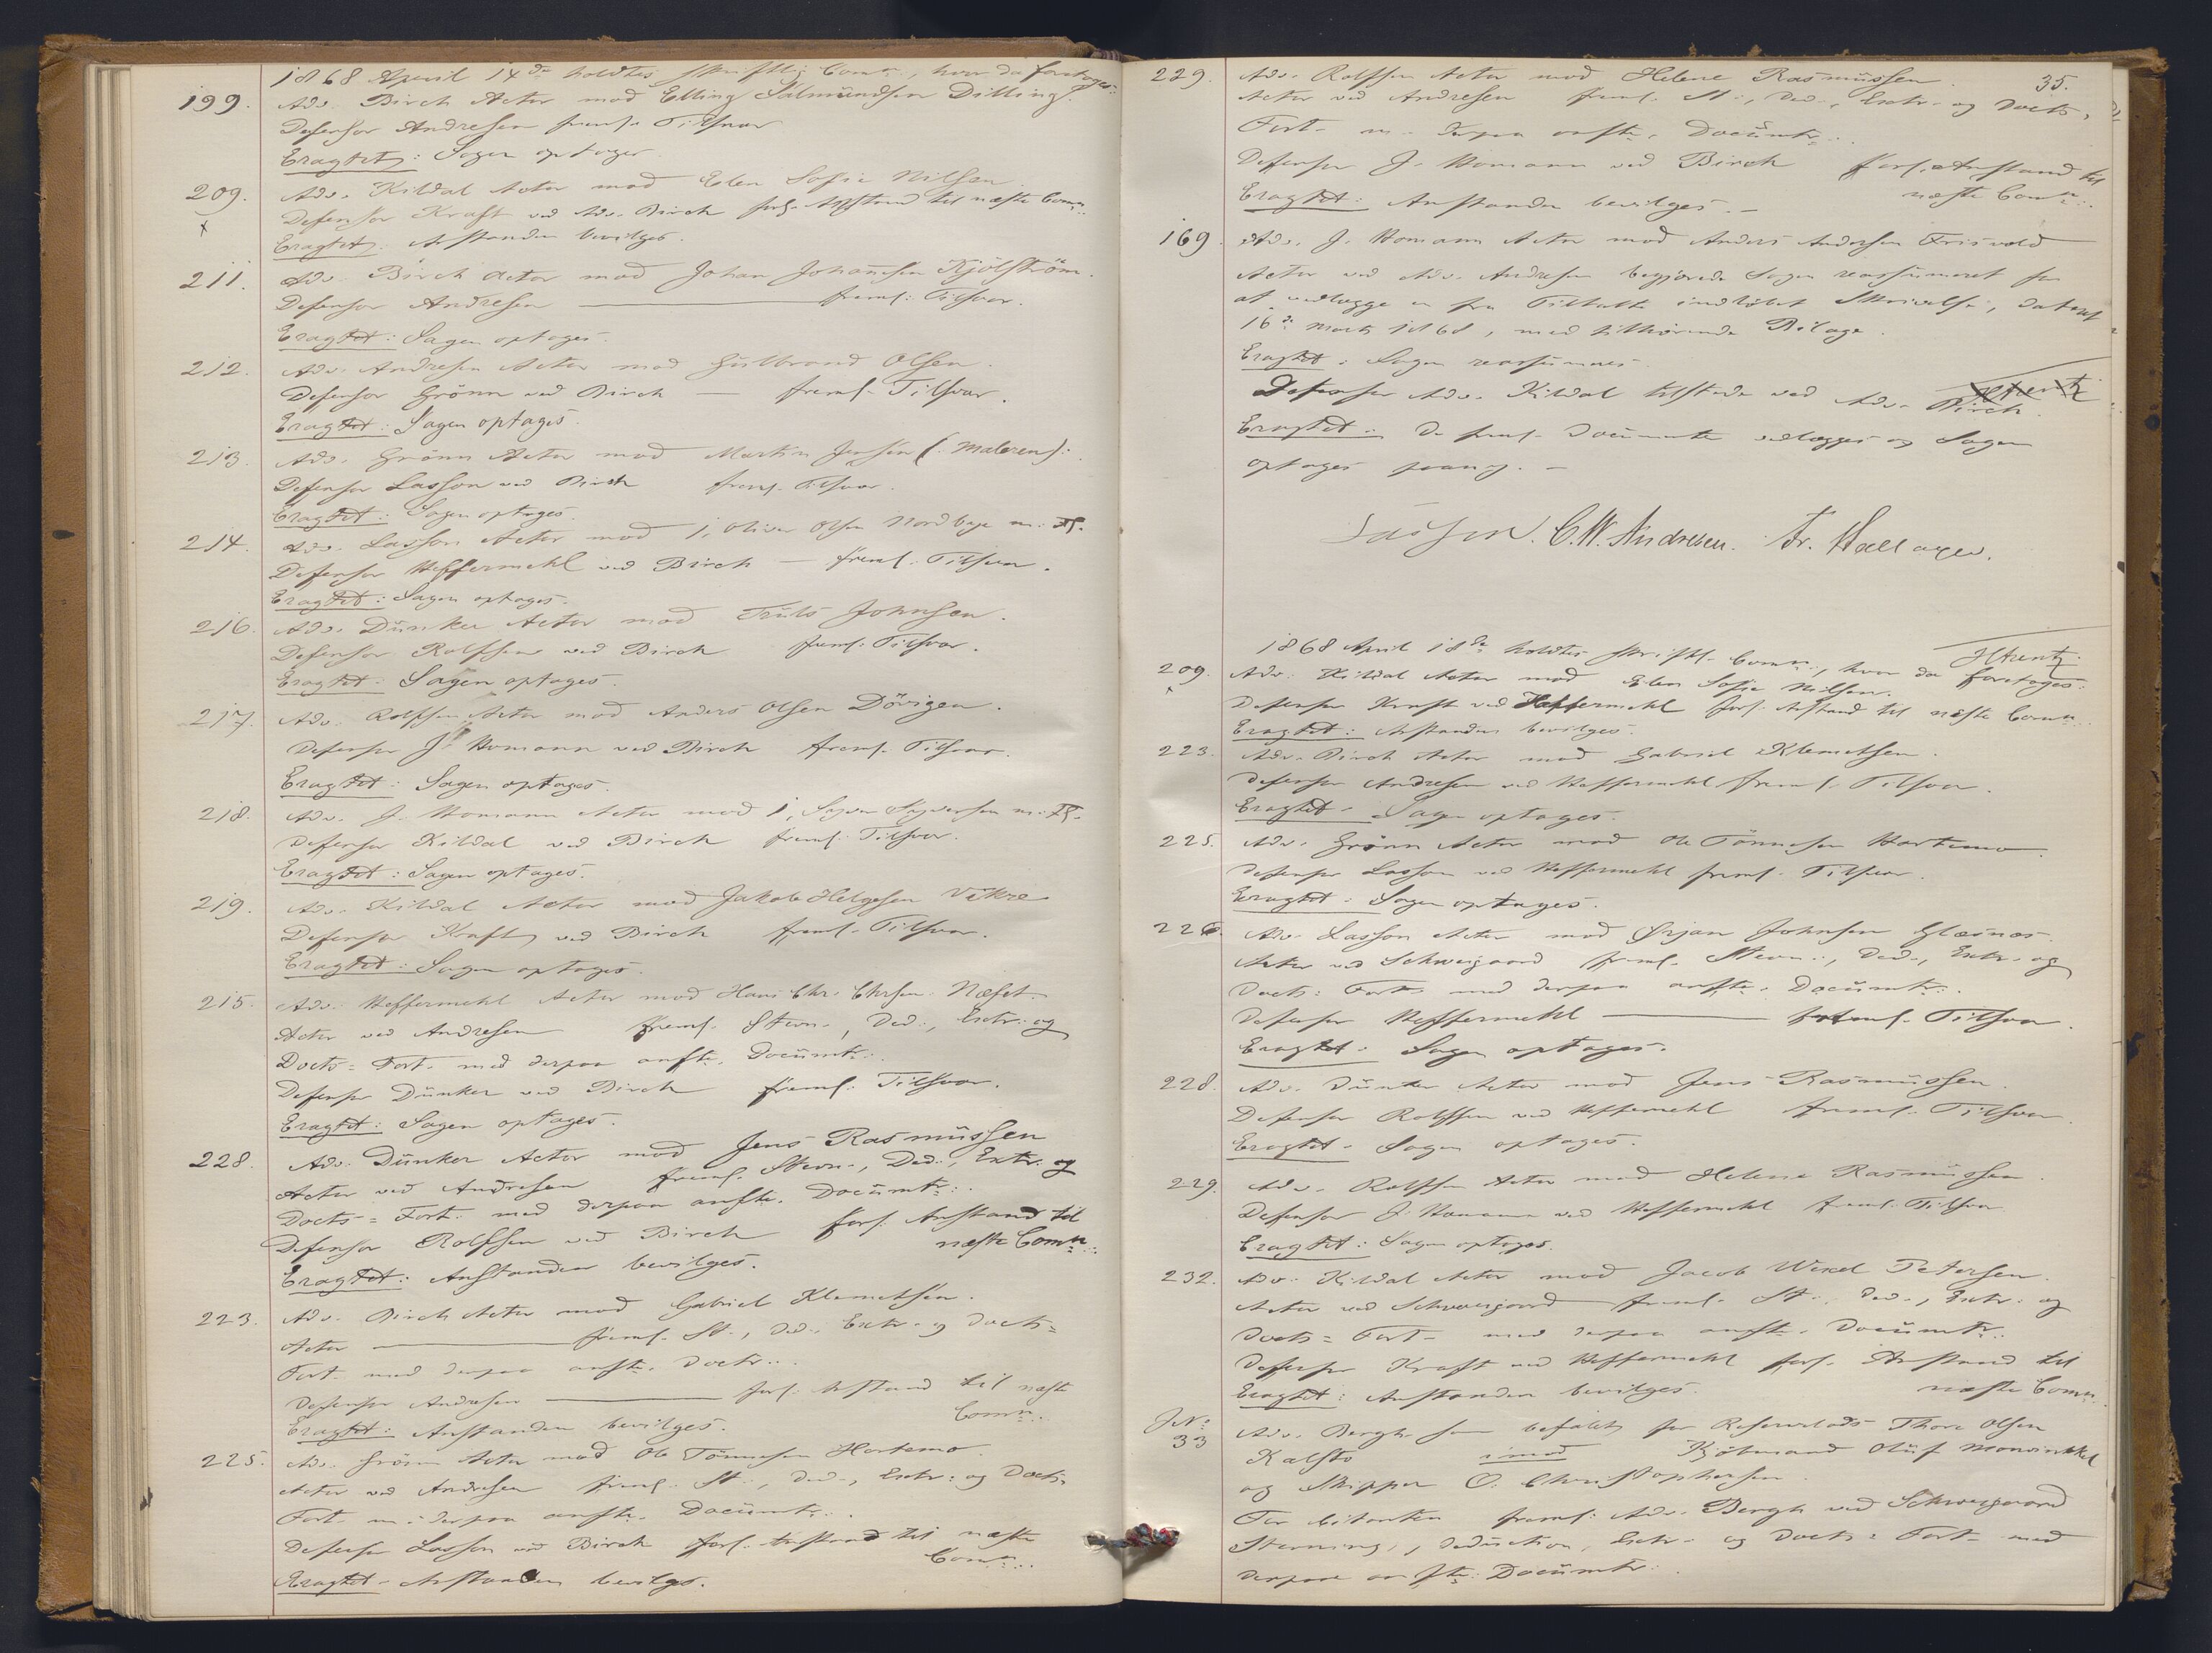 1868 April 14de holdtes skriftlig Comn:, hvor da foretoges:
199. Adv. Birch Actor mod Elling Salmundsen Dilling.
Defensor Andresen freml. Tilsvar
Eragtet: Sagen optages.
209. Adv. Kildal Actor mod Elen Sofie Nilsen.
Defensor Kraft ved Adv. Birch forl. Anstand til næste Comn:.
Eragtet: Anstanden bevilges.
211. Adv. Birch Actor mod Johan Johannsen Kjölström.
Defensor Andresen — freml: Tilsvar.
Eragtet: Sagen optages.
212. Adv. Andresen Actor mod Gulbrand Olsen.
Defensor Grönn ved Birch — freml. Tilsvar.
Eragtet: Sagen optages.
213. Adv. Grönn Actor mod Martin Jensen (: Maleren):.
Defensor Lasson ved Birch freml. Tilsvar.
Eragtet: Sagen optages.
214. Adv. Lasson Actor mod 1, Oliver Olsen Nordbye m: Fl.
Defensor Heffermehl ved Birch — freml. Tilsvar.
Eragtet: Sagen optages.
216. Adv. Dunker Actor mod Truls Johnsen.
Defensor Rolfsen ved Birch freml: Tilsvar.
Eragtet: Sagen optages.
217. Adv. Rolfsen Actor mod Anders Olsen Dövigen.
Defensor J. Homann ved Birch freml. Tilsvar.
Eragtet: Sagen optages.
218. Adv. J. Homann Actor mod 1, Syver Syversen m: Fl.
Defensor Kildal ved Birch freml: Tilsvar.
Eragtet: Sagen optages.
219. Adv. Kildal Actor mod Jakob Helgesen Vikre
Defensor Kraft ved Birch freml. Tilsvar.
Eragtet: Sagen optages.
215. Adv. Heffermehl Actor mod Hans Chr. Chrsen. Næset.
Actor ved Andresen freml. Stevn., Ded:, Extr. og
Docts= Fort. med derpaa anfte. Documtr:.
Defensor Dunker ved Birch freml: Tilsvar.
Eragtet: Sagen optages.
228. Adv. Dunker Actor mod Jens Rasmussen
Actor ved Andresen freml. Stevn., Ded:, Extr. og
Docts= Fort. med derpaa anfte. Documtr:.
Defensor Rolfsen ved Birch forl. Anstand til
næste Comn:.
Eragtet: Anstanden bevilges.
223. Adv. Birch Actor mod Gabriel Klemetsen.
Actor — freml. St., Ded., Extr. og Docts=
Fort. med derpaa anfte. Doctr:.
Defensor Andresen — forl. Anstand til næste
Comn:.
Eragtet: Anstanden bevilges.
225. Adv. Grönn Actor mod Ole Tönnesen Hortemo.
Actor ved Andresen freml. St., Ded., Extr. og Docts.
Fort. m. derpaa anfte. Documtr:.
Defensor Lasson ved Birch forl. Anstand til næste
Comn:.
Eragtet. Anstanden bevilges.
35.
229. Adv. Rolfsen Actor mod Helene Rasmussen
Actor ved Andresen freml. St., Ded., Extr. og Docts,
Fort. m. derpaa anfte. Documtr:.
Defensor J. Homann ved Birch forl. Anstand til
næste Comn:.
Eragtet: Anstanden bevilges. —
169. Adv. J. Homann Actor mod Anders Andersen Frisvold
Actor ved Adv. Andresen begjærede Sagen reassumeret for
at vedlægge en fra Tiltalte indløbet Skrivelse, dateret
16de Marts 1868, med tilhørende Bilage.
Eragtet: Sagen reassumeres.
Defensor Adv. Kildal tilstede ved Adv. Birch.
Eragtet: De freml. Documenter vedlægges og Sagen
optages paany. —
Lasson. C. W. Andresen. Fr. Hallager.
1868 April 18de holdtes skriftl. Comn:, hvor da foretoges:
209. Adv. Kildal Actor mod Elen Sofie Nilsen.
Defensor Kraft ved Heffermehl forl. Anstand til næste Comn:.
Eragtet: Anstanden bevilges.
223. Adv. Birch Actor mod Gabriel Klemetsen.
Defensor Andresen ved Heffermehl freml. Tilsvar.
Eragtet. Sagen optages.
225. Adv. Grönn Actor mod Ole Tönnesen Hortemo.
Defensor Lasson ved Heffermehl freml. Tilsvar.
Eragtet: Sagen optages.
226. Adv. Lasson Actor mod Ørjan Johnsen Glæsnæs.
Actor ved Schweigaard freml. Stevn:, Ded., Extr. og
Docts: Fort. med derpaa anfte. Documtr:.
Defensor Heffermehl — freml. Tilsvar.
Eragtet. Sagen optages.
228. Adv. Dunker Actor mod Jens Rasmussen.
Defensor Rolfsen ved Heffermehl freml. Tilsvar
Eragtet. Sagen optages.
229. Adv. Rolfsen Actor mod Helene Rasmussen.
Defensor J. Homann ved Heffermehl freml. Tilsvar
Eragtet: Sagen optages.
232. Adv. Kildal Actor mod Jacob Wexel Petersen.
Actor ved Schweigaard freml. St., Ded., Extr. og
Docts= Fort. med derpaa anfte. Documtr:.
Defensor Kraft ved Heffermehl forl. Anstand til
næste Comn:.
Eragtet: Anstanden bevilges.
33 Adv. Bergh som befalet for Reservelods Thore Olsen
Kalstø imod Kjøbmand Oluf Monwinkkel
og Skipper O. Christophersen.
For Citanten freml. Adv. Bergh ved Schweigaard
Stevning, Deduction, Extr. og Docts= Fort. med
derpaa anfte: Documtr:.